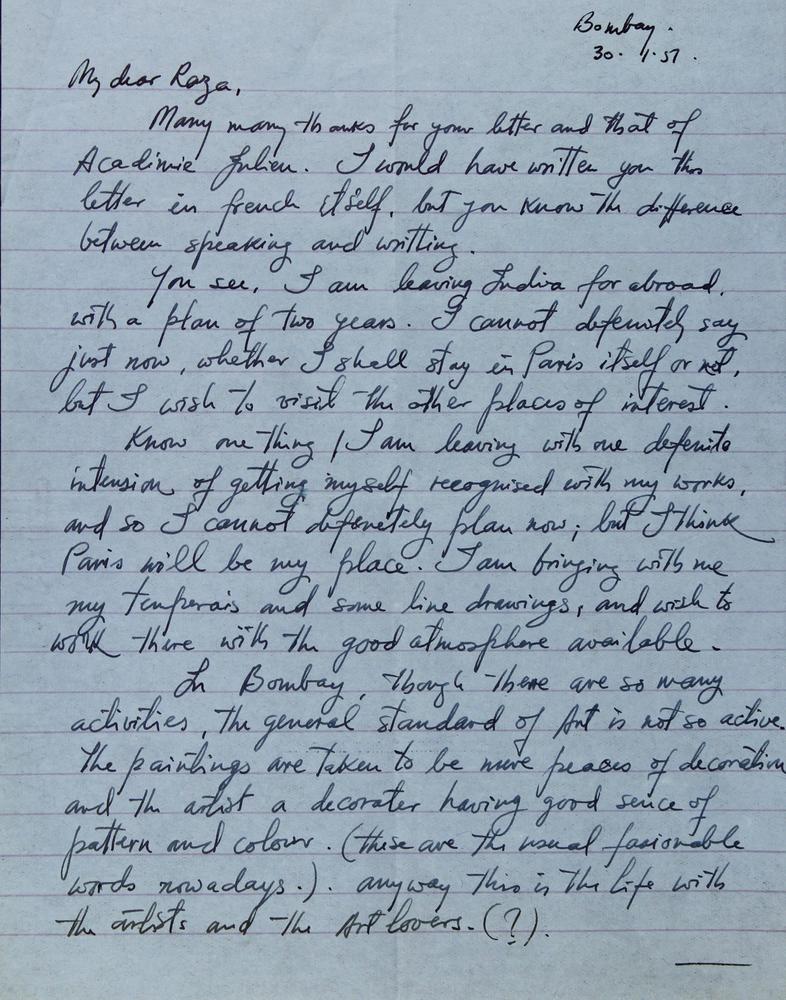 Bombay.
30. 1.57.
My dear Raza,
Many many thanks for your letter and that of
Académie Julien. I would have written you this
letter in french itself, but you know the difference
between speaking and writting.
You see, I am leaving India for abroad,
with a plan of two years. I cannot defenitely say
just now, whether I shall stay in Paris itself or not,
but I wish to visit the other places of interest.
Know one thing, I am leaving with one defenite
intension, of getting myself recognised with my works,
and so I cannot defenetely plan now; but I think
Paris will be my place. I am bringing with me
my temperais and some line drawings, and wish to
work there with the good atmosphere available.
In Bombay, though there are so many
activities, the general standard of Art is not so active.
The paintings are taken to be mere peaces of decoration
and the artist a decorater having good sence of
pattern and colour. (these are the usual fasionable
words nowadays.). anyway this is the life with
the artists and the Art lovers. (?).